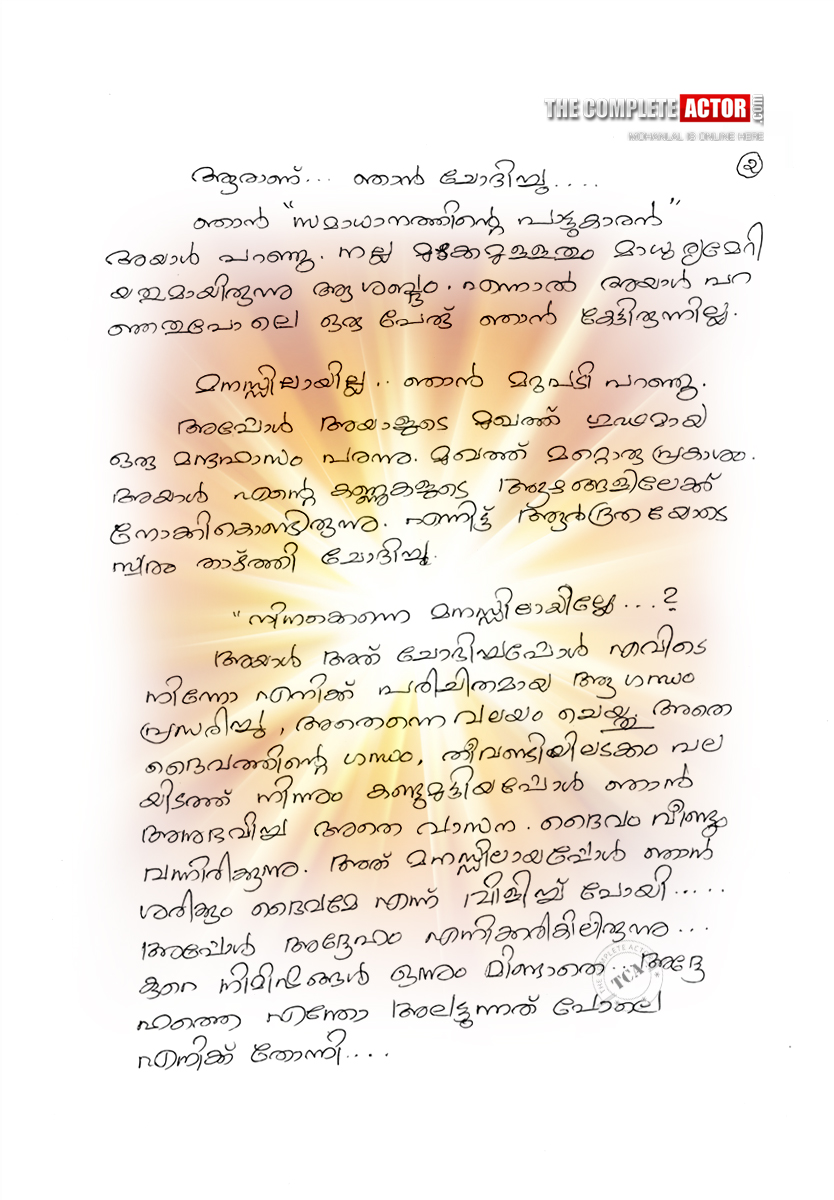 THE COMPLETE ACTOR .COM
MOHANLAL IS ONLINE HERE
൨
ആരാണ്... ഞാൻ ചോദിച്ചു....
ഞാൻ "സമാധാനത്തിന്റെ പാട്ടുകാരൻ"
അയാൾ പറഞ്ഞു. നല്ല മുഴക്കമുള്ളതും മാധുര്യമേറി
യതുമായിരുന്നു ആ ശബ്ദം. എന്നാൽ അയാൾ പറ
ഞ്ഞതുപോലെ ഒരു പേര് ഞാൻ കേട്ടിരുന്നില്ല.
മനസ്സിലായില്ല.. ഞാൻ മറുപടി പറഞ്ഞു.
അപ്പോൾ അയാളുടെ മുഖത്ത് ഗൂഢമായ
ഒരു മന്ദഹാസം പരന്നു. മുഖത്ത് മറ്റൊരു പ്രകാശം.
അയാൾ എന്റെ കണ്ണുകളുടെ ആഴങ്ങളിലേക്ക്
നോക്കികൊണ്ടിരുന്നു. എന്നിട്ട് ആർദ്രതയോടെ
സ്വരം താഴ്ത്തി ചോദിച്ചു.
"നിനക്കെന്നെ മനസ്സിലായില്ലേ...?
അയാൾ അത് ചോദിച്ചപ്പോൾ എവിടെ
നിന്നോ എനിക്ക് പരിചിതമായ ആ ഗന്ധം
പ്രസരിച്ചു, അതെന്നെ വലയം ചെയ്തു അതെ
ദൈവത്തിന്റെ ഗന്ധം, തീവണ്ടിയിലടക്കം പല
യിടത്ത് നിന്നും കണ്ടുമുട്ടിയപ്പോൾ ഞാൻ
അനുഭവിച്ച അതെ വാസന. ദൈവം വീണ്ടും
വന്നിരിക്കുന്നു. അത് മനസ്സിലായപ്പോൾ ഞാൻ
ശരിക്കും ദൈവമേ എന്ന് വിളിച്ച് പോയി.....
അപ്പോൾ അദ്ദേഹം എനിക്കരികിലിരുന്നു...
കുറെ നിമിഷങ്ങൾ ഒന്നും മിണ്ടാതെ.. അദ്ദേ
ഹത്തെ എന്തോ അലട്ടുന്നത് പോലെ
എനിക്ക് തോന്നി....
THE COMPLETE ACTOR
TCA